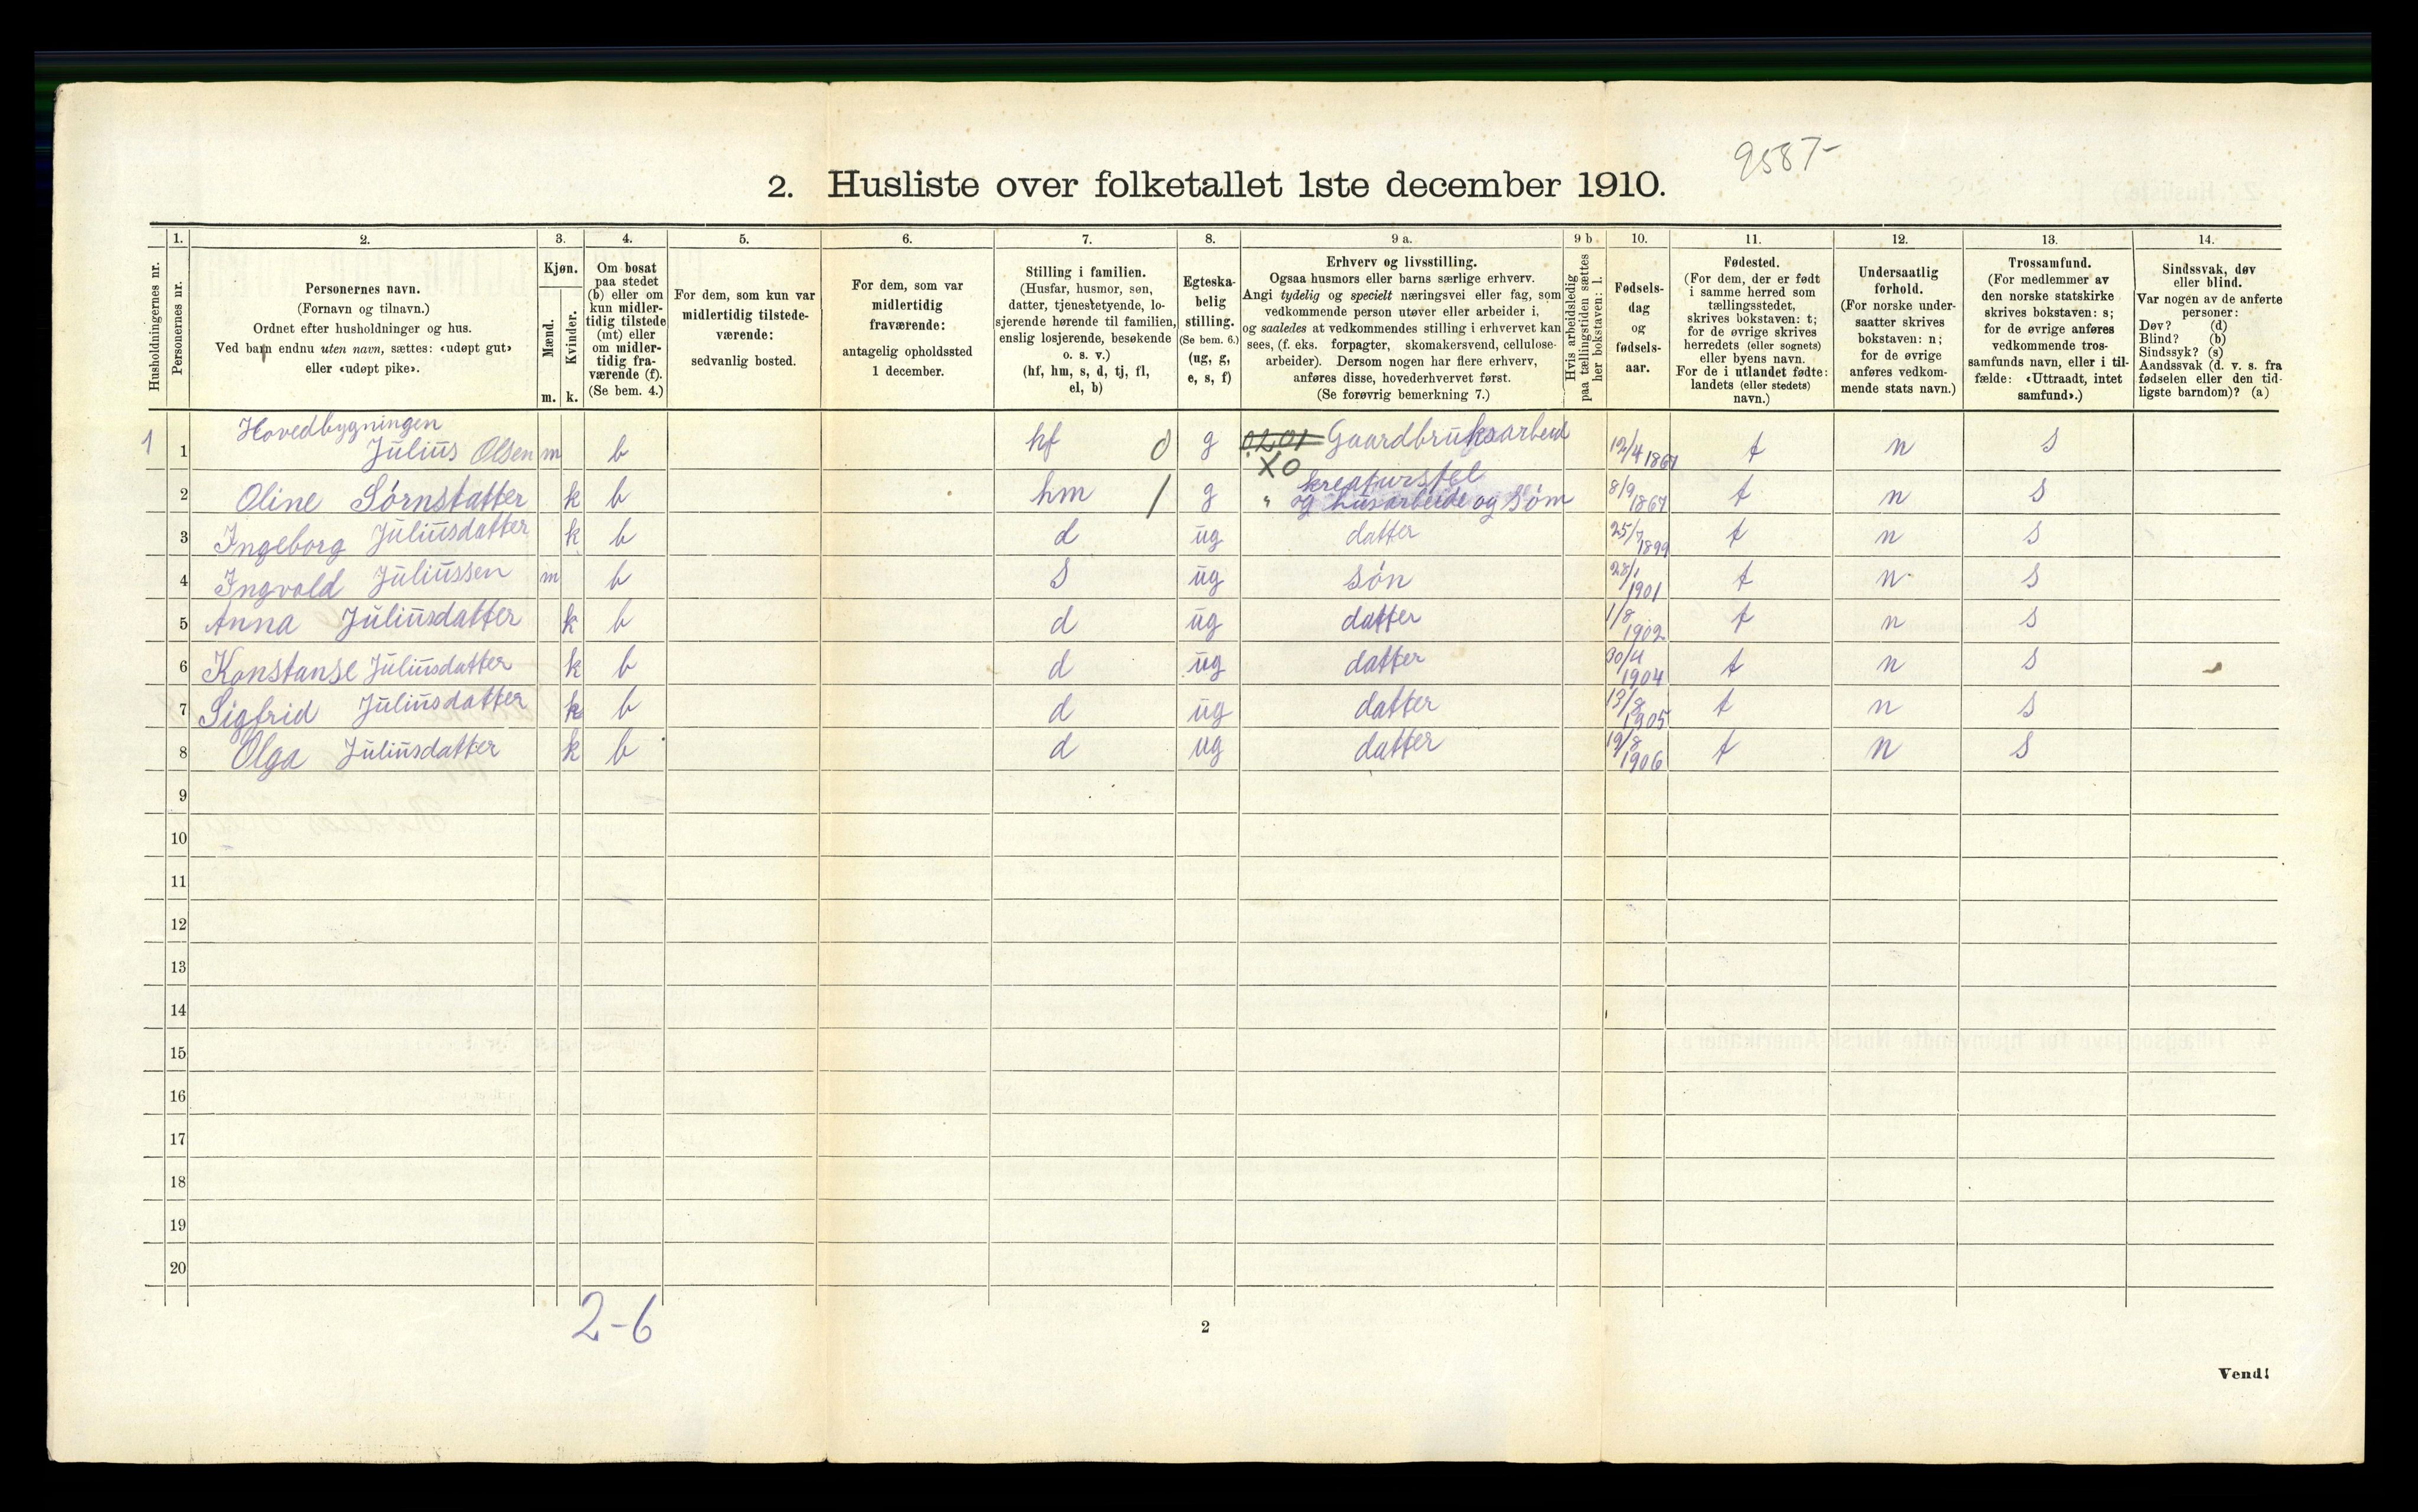 9587-
2. Husliste over folketallet 1ste december 1910.
Husholdningernes nr.
1.
Personernes nr.
2.
Personernes navn.
(Fornavn og tilnavn.)
Ordnet efter husholdninger og hus.
Ved barn endnu uten navn, sættes: «udøpt gut»
eller «udøpt pike».
3.
Kjøn.
Mænd.
Kvinder.
m. k.
4.
Om bosat
paa stedet
(b) eller om
kun midler-
tidig tilstede
(mt) eller
om midler-
tidig fra-
værende (f).
(Se bem. 4.)
5.
For dem, som kun var
midlertidig tilstede-
værende:
sedvanlig bosted.
6.
For dem, som var
midlertidig
fraværende:
antagelig opholdssted
1 december.
7.
Stilling i familien.
(Husfar, husmor, søn,
datter, tjenestetyende, lo-
sjerende hørende til familien,
enslig losjerende, besøkende
o. s. v.)
(hf, hm, s, d, tj, fl,
el, b)
8.
Egteska-
belig
stilling.
(Se bem. 6.)
(ug, g,
e, s, f)
9 a.
Erhverv og livsstilling.
Ogsaa husmors eller barns særlige erhverv.
Angi tydelig og specielt næringsvei eller fag, som
vedkommende person utøver eller arbeider i,
og saaledes at vedkommendes stilling i erhvervet kan
sees, (f. eks. forpagter, skomakersvend, cellulose-
arbeider). Dersom nogen har flere erhverv,
anføres disse, hovederhvervet først.
(Se forøvrig bemerkning 7.)
9 b
Hvis arbeidsledig
paa tællingstiden sættes
her bokstaven: l.
10.
Fødsels-
dag
og
fødsels-
aar.
11.
Fødested.
(For dem, der er født
i samme herred som
tællingsstedet,
skrives bokstaven: t;
for de øvrige skrives
herredets (eller sognets)
eller byens navn.
For de i utlandet fødte:
landets (eller stedets)
navn.)
12.
Undersaatlig
forhold.
(For norske under-
saatter skrives
bokstaven: n;
for de øvrige
anføres vedkom-
mende stats navn.)
13.
Trossamfund.
(For medlemmer av
den norske statskirke
skrives bokstaven: s;
for de øvrige anføres
vedkommende tros-
samfunds navn, eller i til-
fælde: «Uttraadt, intet
samfund».)
14.
Sindssvak, døv
eller blind.
Var nogen av de anførte
personer:
Døv? (d)
Blind? (b)
Sindssyk? (s)
Aandssvak (d. v. s. fra
fødselen eller den tid-
ligste barndom)? (a)
Hovedbygningen
1 1 Julius Olsen m b hf 0 g 0201 Gaardbruksarbeid 12/4 1867 t n s
XO kreaturstel
2 Oline Sørnstatter k b hm 1 g " og husarbeide og Søm 8/9 1867 t n s
3 Ingeborg Juliusdatter k b d ug datter 25/7 1899 t n s
4 Ingvald Juliussen m b s ug søn 28/1 1901 t n s
5 Anna Juliusdatter k b d ug datter 1/8 1902 t n s
6 Konstanse Juliusdatter k b d ug datter 30/4 1904 t n s
7 Sigfrid Juliusdatter k b d ug datter 13/8 1905 t n s
8 Olga Juliusdatter k b d ug datter 19/8 1906 t n s
9
10
11
12
13
14
15
16
17
18
19
20
2-6
2
Vend!